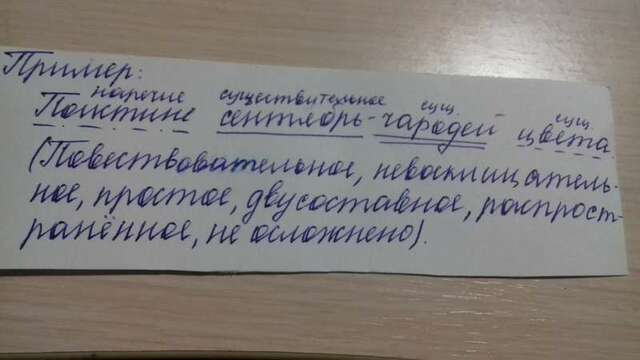 Пример:
наречие существительное сущ. сущ.
Поистине сентябрь - чародей цвета
(Повествовательное, невосклицатель-
ное, простое, двусоставное, распрост-
ранённое, не осложнено).